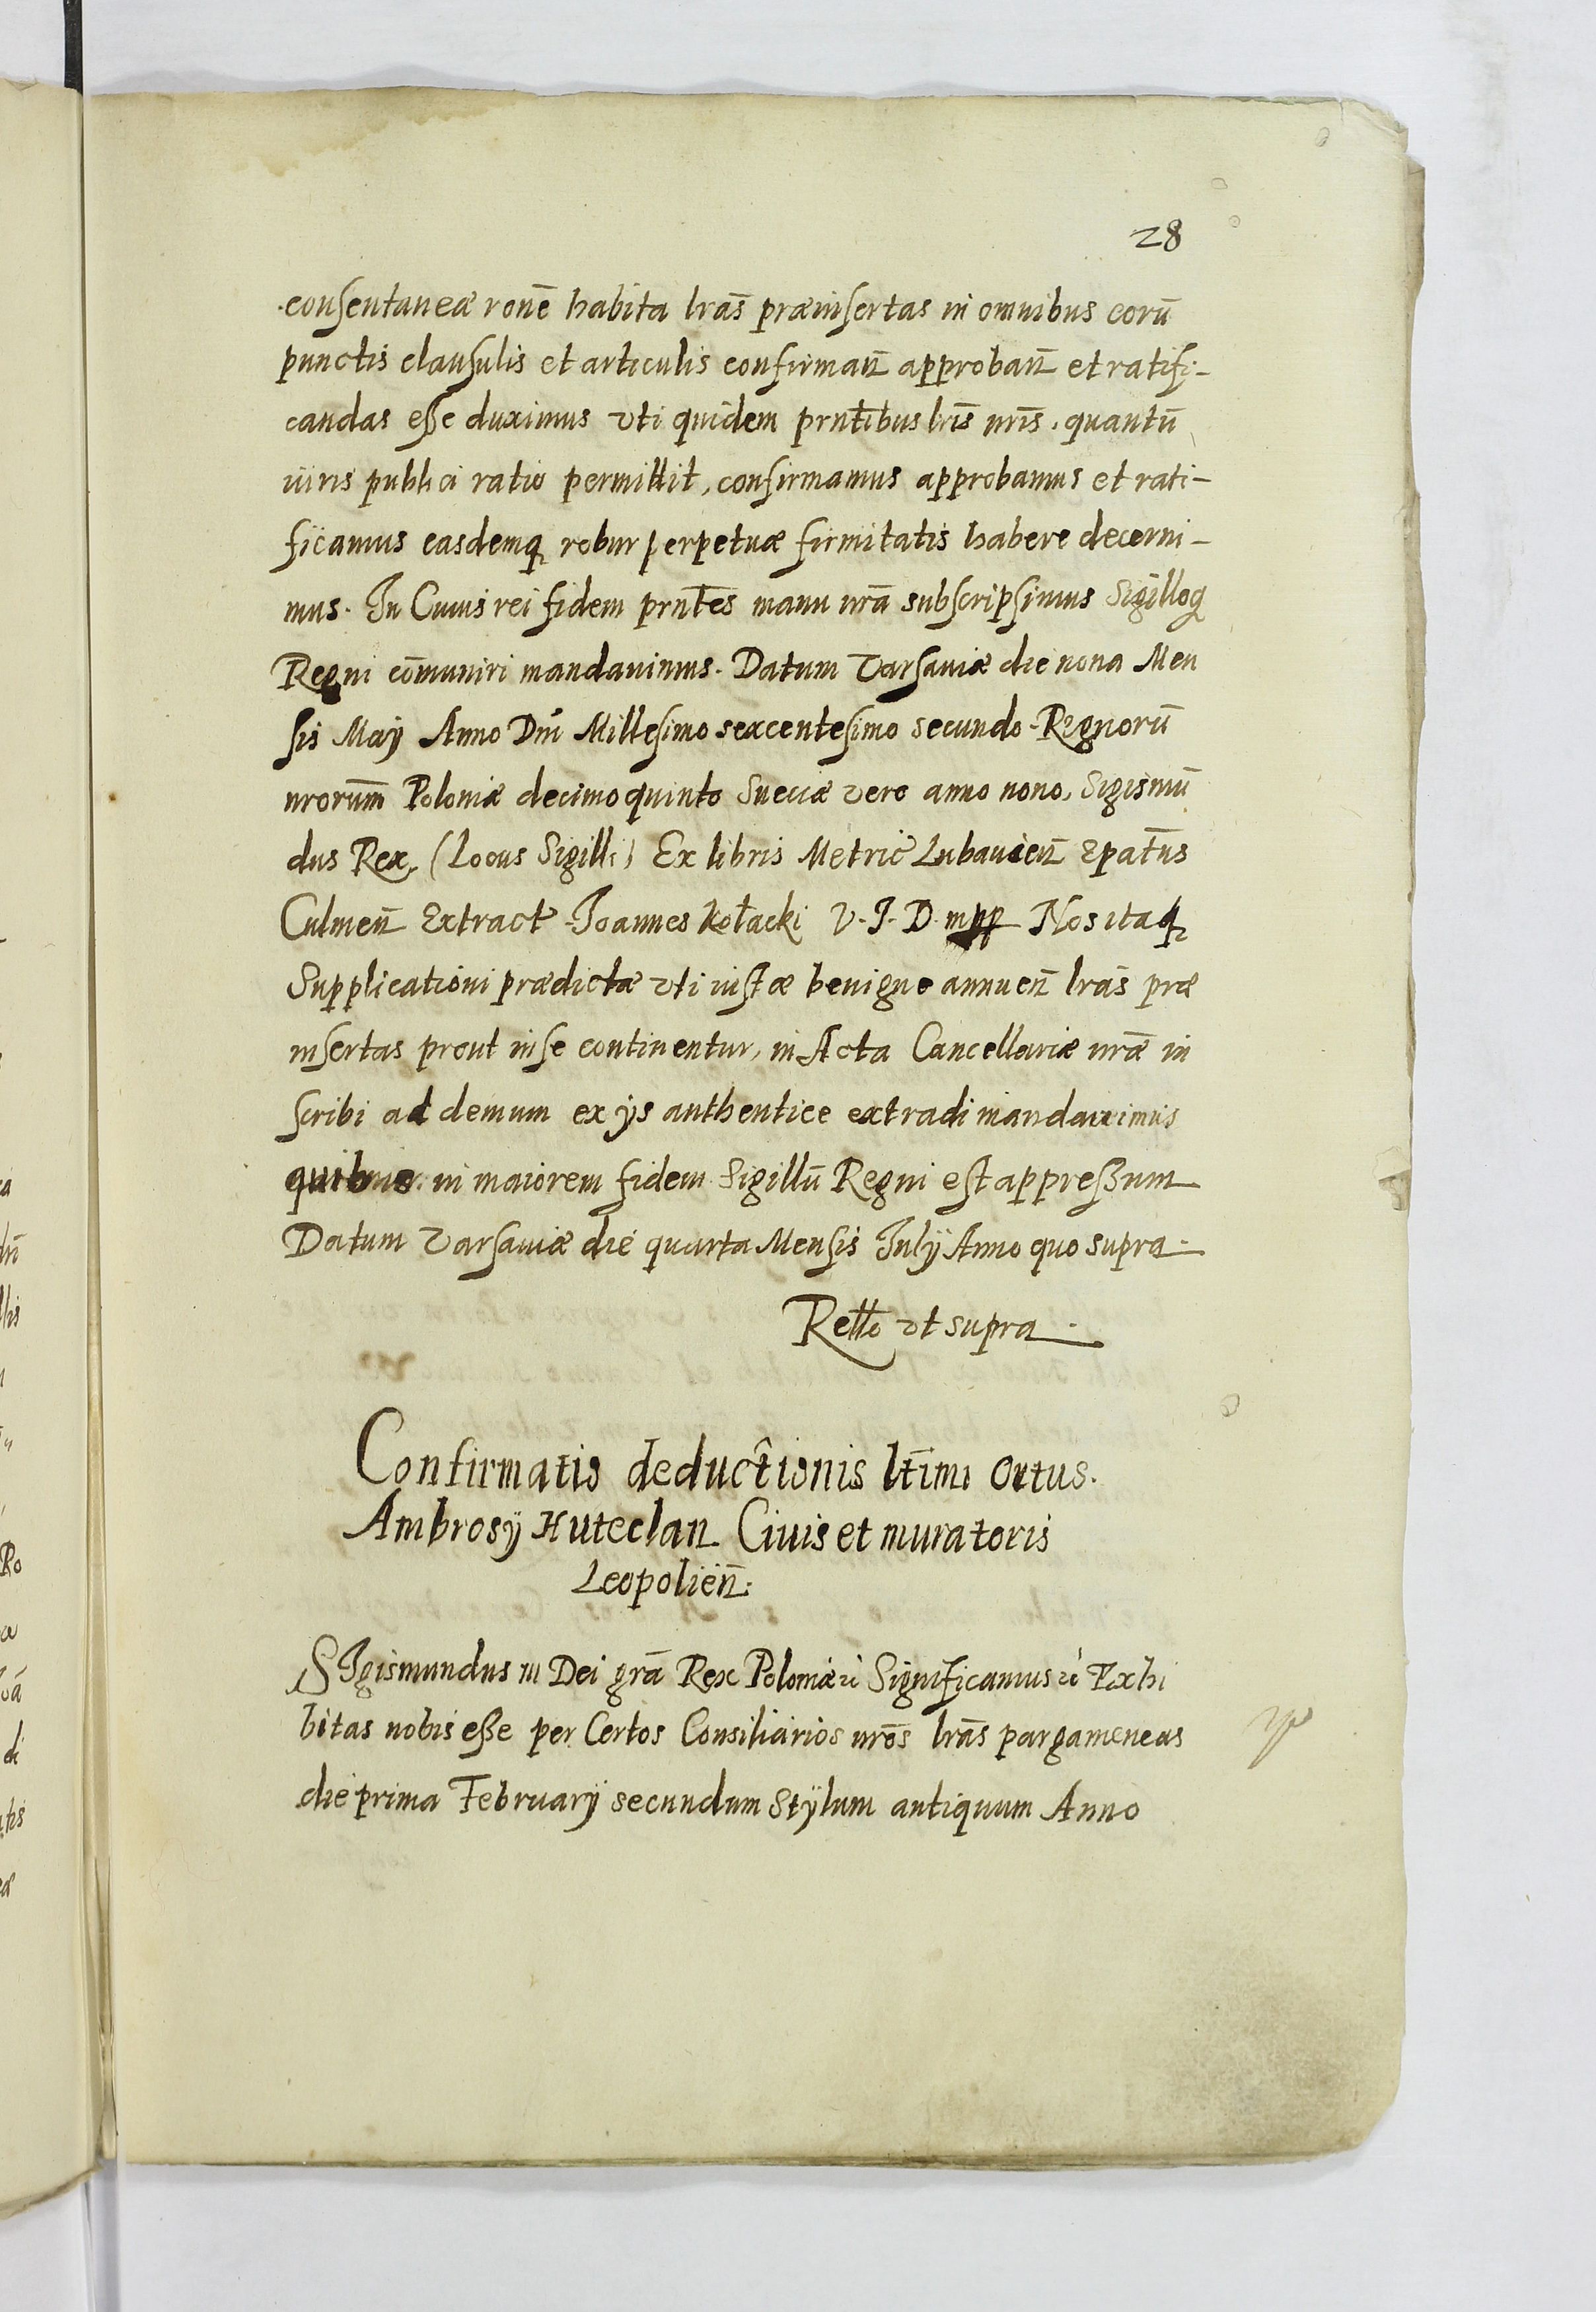 28
consentaneæ ronē habita lrās præinsertas in omnibus eorū
punctis clausulis et articulis confirman̄ approban̄ et ratifi-
candas esse duximus vti quidem prntibus lris nris. quantū
iuris publici ratio permittit, confirmamus approbamus et rati-
ficamus easdemq robur perpetuæ firmitatis habere decerni-
mus. In Cuius rei fidem prntes manu nrā subscripsimus Sigilloq
Regni cōmuniri mandauimus. Datum Varsauiæ die nona Men
sis Maÿ Anno Dni Millesimo sexcentesimo secundo. Regnorū
nrorum Poloniæ decimo quinto Sueciæ vero anno nono, Sigismū
dus Rex, (Locus Sigilli) Ex libris Metric Lubauien̄ Epatns
Culmen̄ Extract Joannes Kołacki V. J. D. mpp Nos itaq
Supplicationi prædictæ vti iustæ benigne annuen̄ lrās præ
insertas prout in se continentur, in Acta Cancellariæ nræ in
scribi ad demum ex ijs authentice extradi mandauimus
quibus in maiorem fidem Sigillū Regni est appressum
Datum Varsauiæ die quarta Mensis Julÿ Anno quo supra.
Retto vt supra.
Confirmatio deductionis ltimi Ortus.
Ambrosÿ Huteclan Ciuis et muratoris
Leopolien̄.
SIgismundus III Dei grā Rex Poloniæ ꝛc Significamus ꝛc Exhi
bitas nobis esse per Certos Consiliarios nrōs lrās pargameneas
die prima Februarÿ secundum Stÿlum antiquum Anno